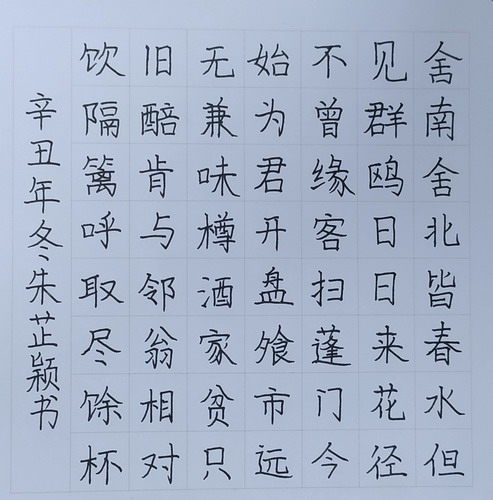 舍南舍北皆春水但
见群鸥日日来花径
不曾缘客扫蓬门今
始为君开盘飧市远
无兼味樽酒家贫只
旧醅肯与邻翁相对
饮隔篱呼取尽馀杯
辛丑年冬朱芷颖书